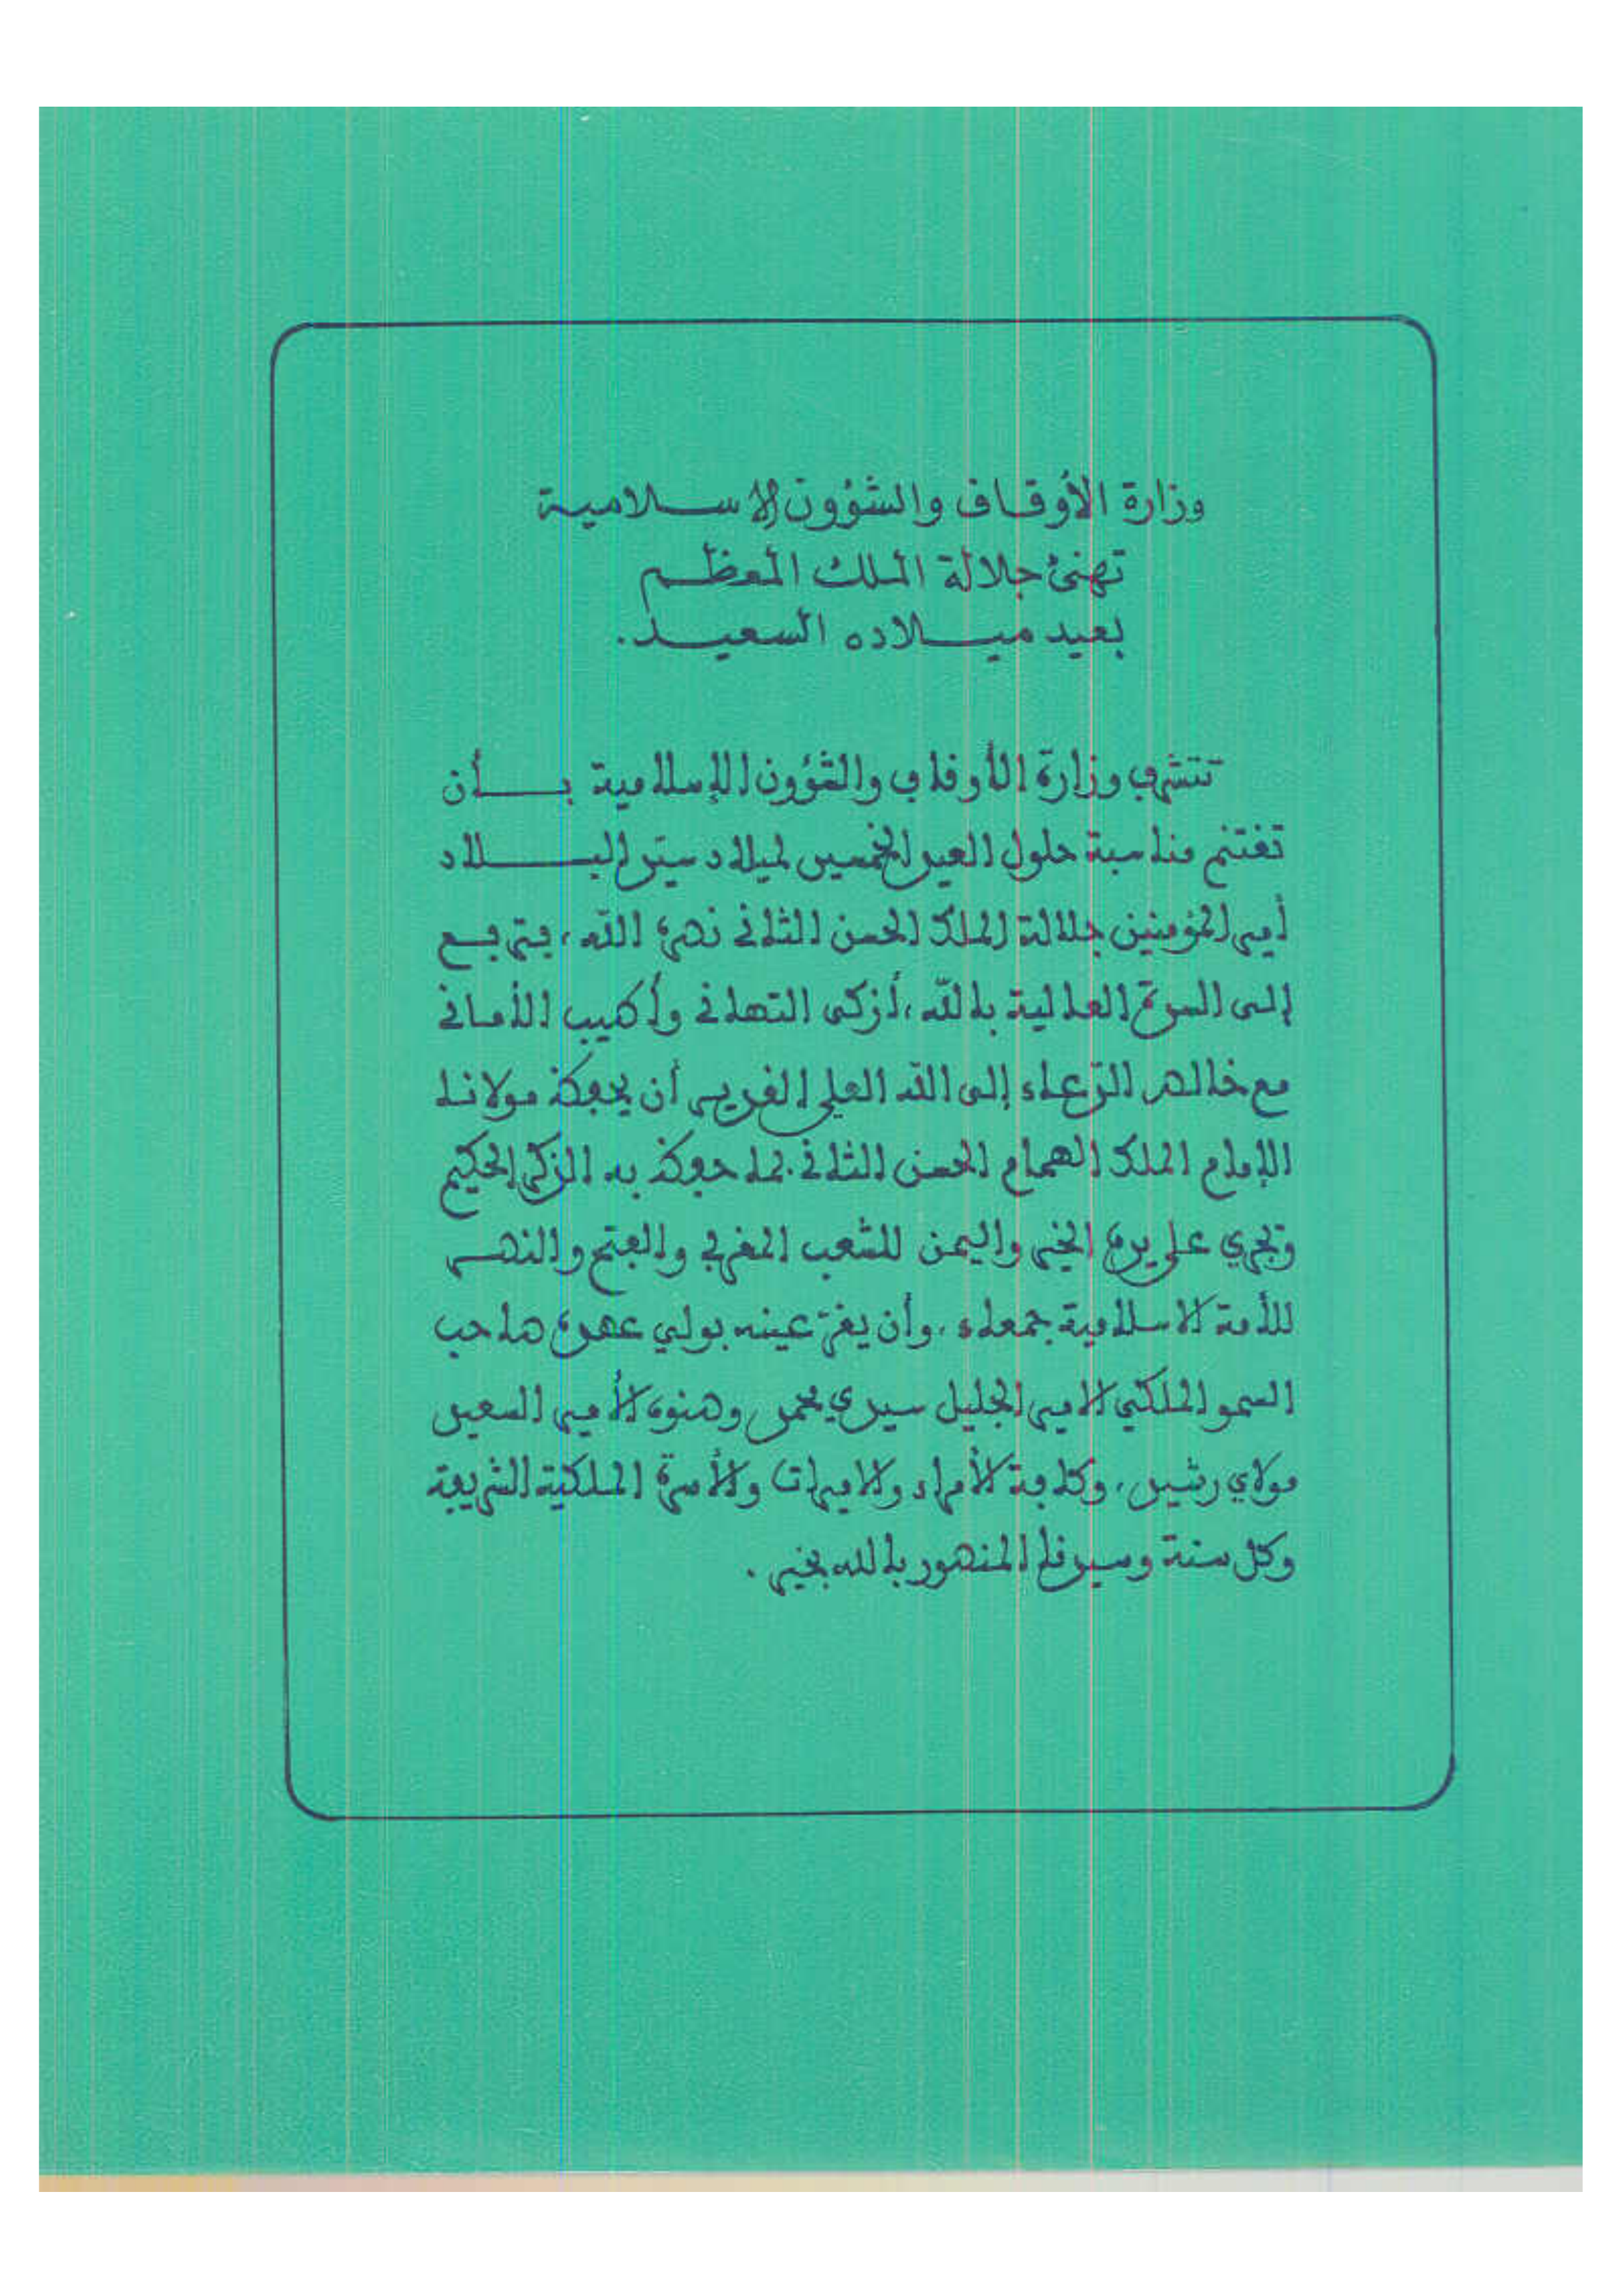 وزارة الأوقاف والشؤون الإسلامية
تهنئ جلالة الملك المعظم
بعيد ميلاده السعيد.
تتشرف وزارة الأوقاف والشؤون الإسلامية بأن
تغتنم مناسبة حلول العيد الخمسين لميلاد سيد البلاد
أمير المؤمنين جلالة الملك الحسن الثاني نصره الله، فترفع
إلى السدة العالية بالله، أزكى التهاني وأطيب الأماني
مع خالص الدعاء إلى الله العلي القدير أن يحفظ مولانا
الإمام الملك الهمام الحسن الثاني بما حفظ به الذكر الحكيم
وتجري على يده الخير واليمن للشعب المغربي والفتح والنصر
للأمة الاسلامية جمعاء، وأن يقر عينه بولي عهده صاحب
السمو الملكي الامير الجليل سيدي محمد وصنوه الأمير السعيد
مولاي رشيد، وكافة الأمراء والاميرات والأسرة الملكية الشريفة
وكل سنة وسيدنا المنصور بالله بخير.